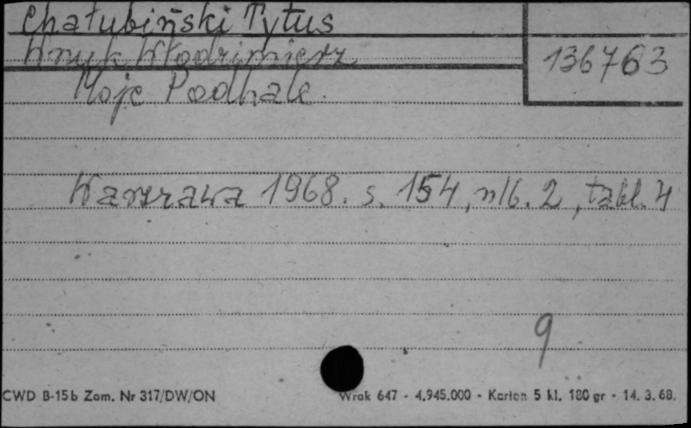 Chałubiński Tytus
Wnuk Włodzimierz
136763
Moje Podhale.
Warszawa 1968. s. 154, nlb. 2, tabl. 4
9
CWD B-15b Zam. Nr 317/DW/ON
Wrak 647 - 4.945.000 - Karton 5 kl. 180 gr - 14. 3. 68.